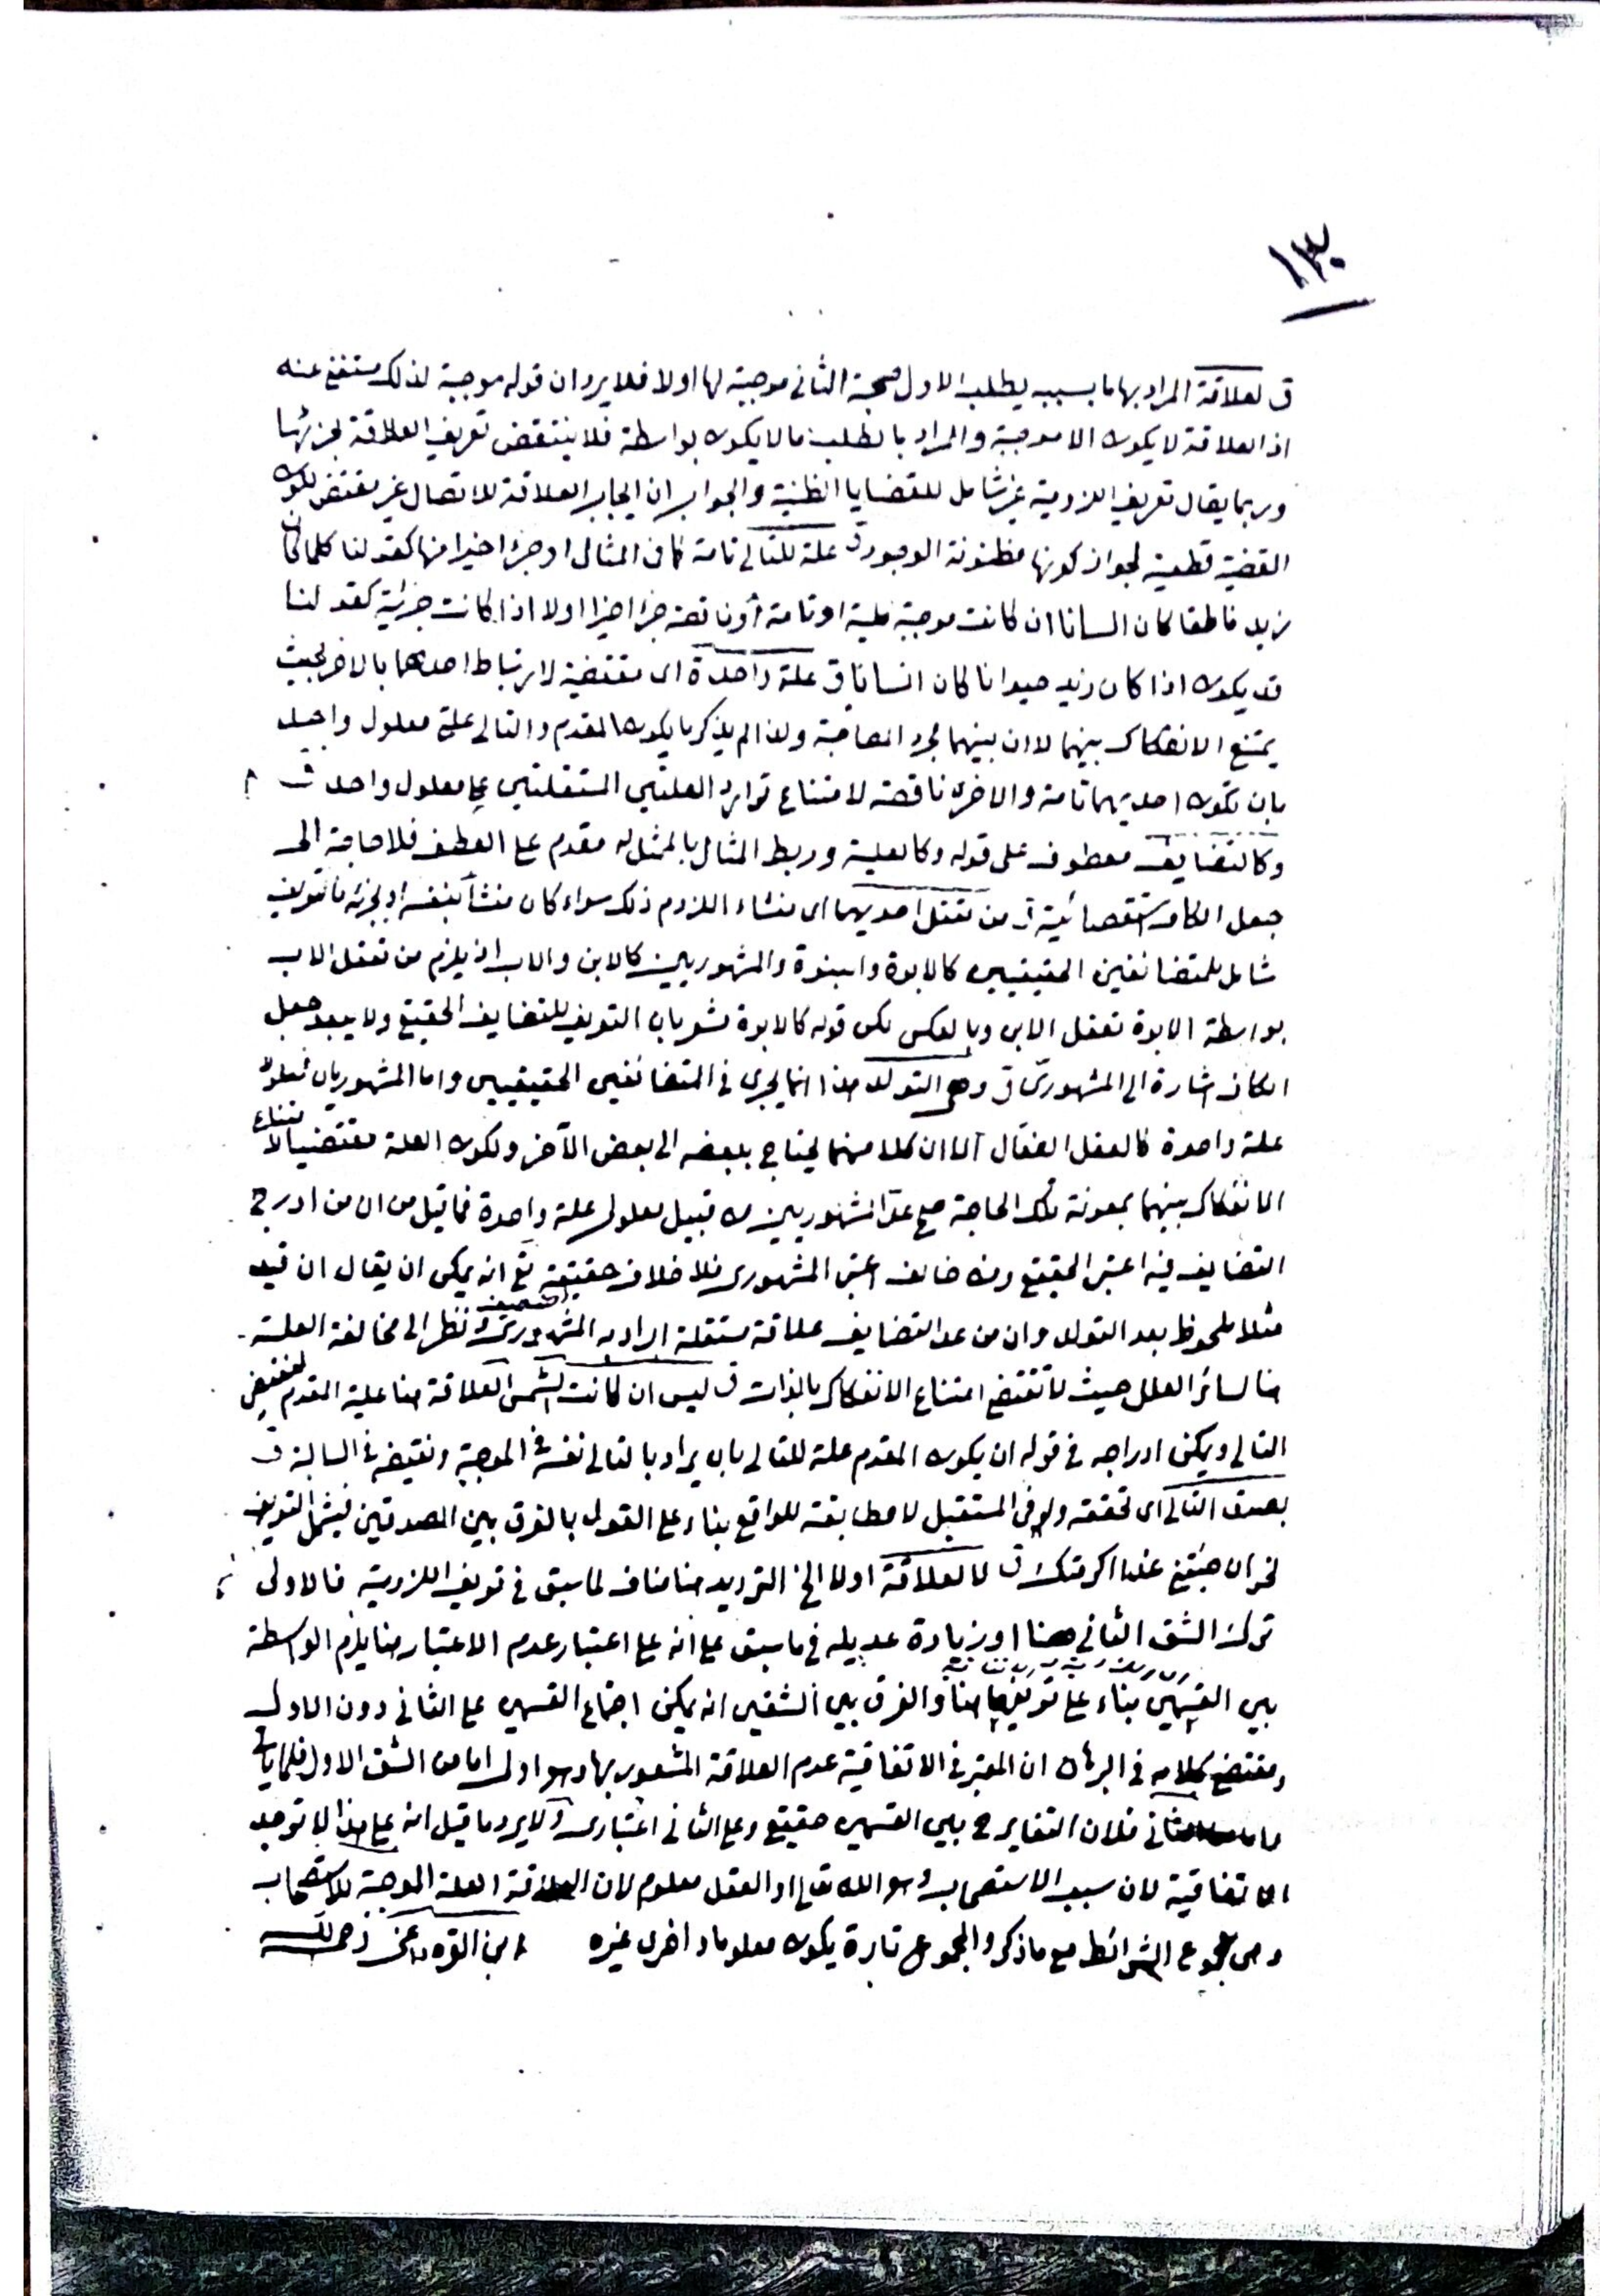 ١٣٠
ق لعلاقة المراد بها ما بسببه يطلب الاول صحبة الثانى موجبة لها اولا فلا يرد ان قوله موجبة لذلك مستغنى عنه
اذ العلاقة لا يكون الا موجبة والمراد بالطلب ما لا يكون بواسطة فلا ينتقض تعريف العلاقة بجزئها
وربما يقال تعريف اللزومية غير شامل للقضايا الظنية والجواب ان ايجاب العلاقة للاتصال غير مقتض لكون
القضية قطعية لجواز كونها مظنونة الوجود ق علة للتالى تامة كما فى المثال او جزء اخيرا منها كقولنا كلما كان
زيد ناطقا كان انسانا ان كانت موجبة كلية او تامة أو ناقصة جزء اخيرا اولا اذا كانت جزئية كقولنا
قد يكون اذا كان زيد حيوانا كان انسانا ق علة واحدة اى مقتضية لارتباط احدهما بالاخر بحيث
يمتنع الانفكاك بينهما لا ان بينهما مجرد المصاحبة ولذا لم يذكر ما يكون المقدم والتالى علة معلول واحد
بان تكون احديهما تامة والاخرى ناقصة لامتناع توارد العلتين المستقلتين على معلول واحد ق
وكالتضايف معطوف على قوله وكالعلية وربط المثال بالممثل له مقدم على العطف فلا حاجة الى
جعل الكاف استقصائية ق من تعقل احديهما اى منشاء اللزوم ذلك سواء كان منشأ بنفسه او بجزئه فالتعريف
شامل للمتضائفين الحقيقيين كالابوة والبنوة والمشهوريين كالابن والاب اذ يلزم من تعقل الاب
بواسطة الابوة تعقل الابن وبالعكس لكن قوله كالابوة مشعر بان التعريف للتضايف الحقيقى ولا يبعد جعل
الكاف اشارة الى المشهورى ق وهى التولد هذا انما يجرى فى المتضائفين الحقيقيين واما المشهوريان فمعلولا
علة واحدة كالعقل الفعّال الا ان كلا منهما يحتاج ببعضه الى بعض الآخر ولكون العلة مقتضيا لامتناع
الانفكاك بينهما بمعونة تلك الحاجة صح عدّ المشهوريين من قبيل معلولى علة واحدة فما قيل من ان من ادرج
التضايف فيه اعتبر الحقيقى ومن خالف اعتبر المشهورى فلا خلاف حقيقة مع انه يمكن ان يقال ان قيد
مثلا ملحوظ بعد التولد وان من عد التضايف علاقة مستقلة اراد به المشهورى ضعيف ونظر الى مخالفة العلة
هنا لسائر العلل حيث لا تقتضى امتناع الانفكاك بالذات ق ليس ان كانت الشمس العلاقة هنا علية المقدم لنقيض
التالى ويمكن ادراجه فى قوله ان يكون المقدم علة للتالى بان يراد بالتالى نفسه فى الموجبة ونقيضه فى السالبة ق
بصدق التالى اى تحققه ولو فى المستقبل لا مطابقته للواقع بناء على القول بالفرق بين الصدقين فيشمل التعريف
نحو ان جئتنى غدا اكرمتك ق لا لعلاقة اولا الخ الترديد هنا مناف لما سبق فى تعريف اللزومية فالاولى
ترك الشق الثانى هنا او زيادة عديله فى ما سبق على انه على اعتبار عدم الاعتبار هنا يلزم الواسطة
بين القسمين بناء على تعريفهما هنا والفرق بين الشقين انه يمكن اجتماع القسمين على الثانى دون الاول
ومقتضى كلامه فى البرهان ان المعتبر فى الاتفاقية عدم العلاقة المشعور بها وهو اولى اما من الشق الاول فلما ياتى
واما الثانى فلان التغاير ح بين القسمين حقيقى وعلى الثانى اعتبارى ولا يرد ما قيل انه على هذا لا توجد
الاتفاقية لان سبب الاستصحاب وهو الله تعالى او العقل معلوم لان العلاقة العلة الموجبة للاستصحاب
وهى مجموع الشرائط مع ما ذكر والمجموع تارة يكون معلوما واخرى غيره ابن القره داغى